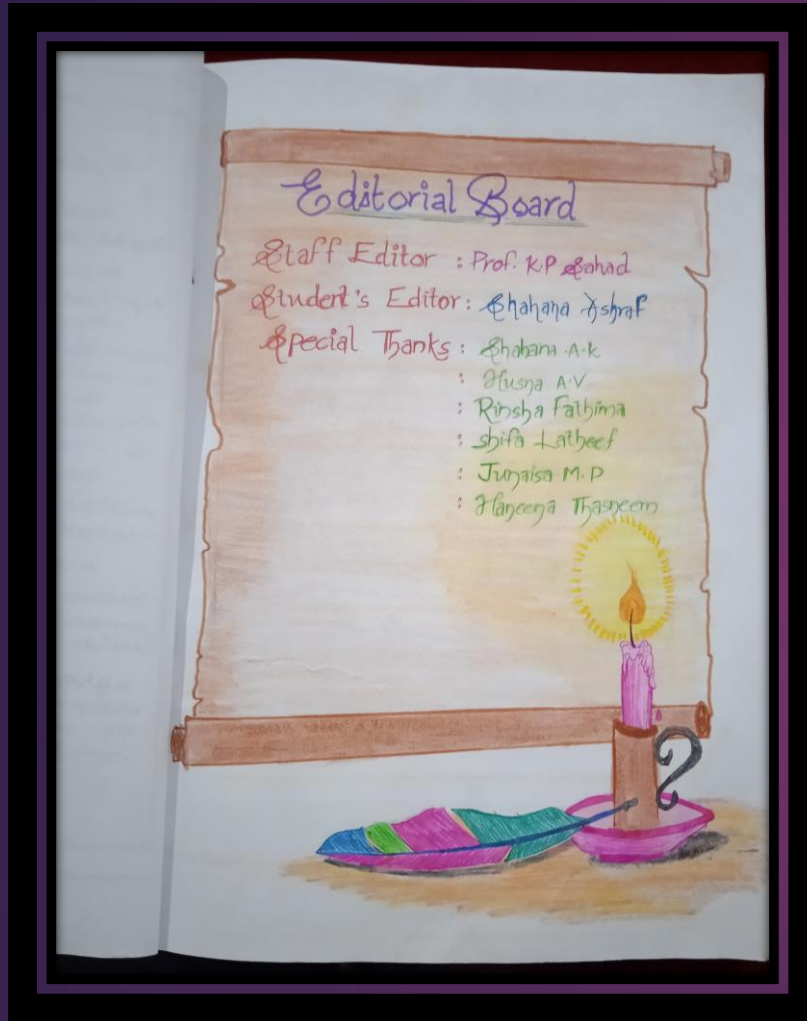 Editorial Board
Staff Editor : Prof. K.P Sahad
Student's Editor : Shahana Ashraf
Special Thanks : Shahana .A.K
: Husna A.V
: Rinsha Fathima
: Shifa Latheef
: Junaisa M.P
: Haneena Thasneem